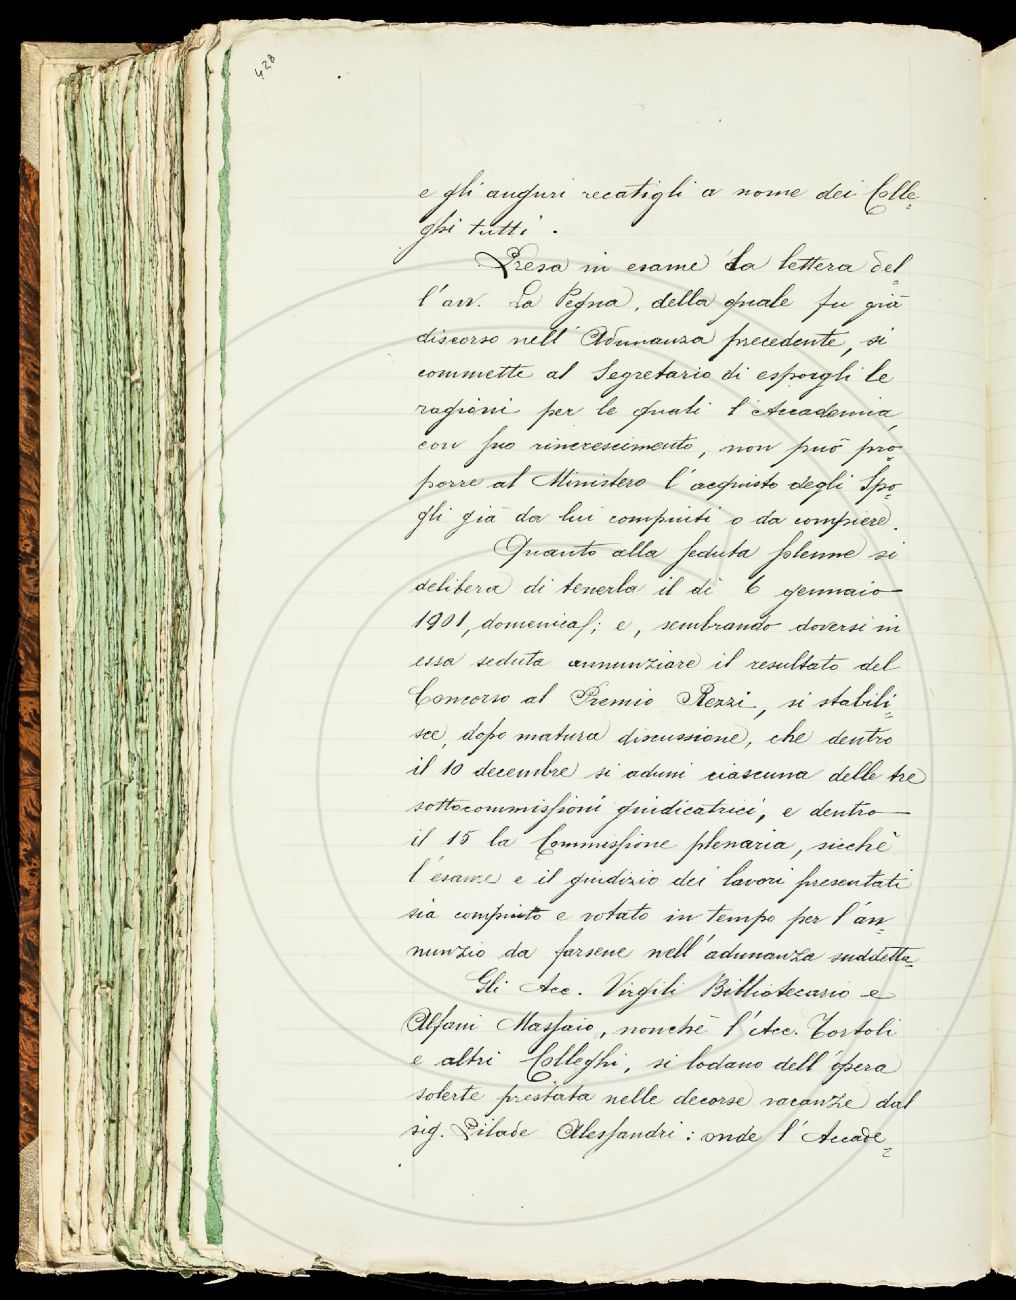 428
e gli auguri recatigli a nome dei Colle=
ghi tutti.
Presa in esame la lettera del=
l'avv. La Pegna, della quale fu già
discorso nell'Adunanza precedente, si
commette al Segretario di esporgli le
ragioni per le quali l'Accademia
con suo rincrescimento, non può pro=
porre al Ministero l'acquisto degli Spo=
gli già da lui compiuti o da compiere.
Quanto alla seduta plenne si
delibera di tenerla il dì 6 gennaio
1901, domenica; e, sembrando doversi in
essa seduta annunziare il resultato del
Concorso al Premio Rezzi, si stabili=
sce, dopo matura discussione, che dentro
il 10 decembre si aduni ciascuna delle tre
sottocommissioni giudicatrici, e dentro
il 15 la Commissione plenaria, sicchè
l'esame e il giudizio dei lavori presentati
sia compiuto e votato in tempo per l'an=
nunzio da farsene nell'adunanza suddetta.
Gli Acc. Virgili Bibliotecario e
Alfani Massaio, nonchè l'Acc. Tortoli
e altri Colleghi, si lodano dell'opera
solerte prestata nelle decorse vacanze dal
sig. Pilade Alessandri: onde l'Accade=